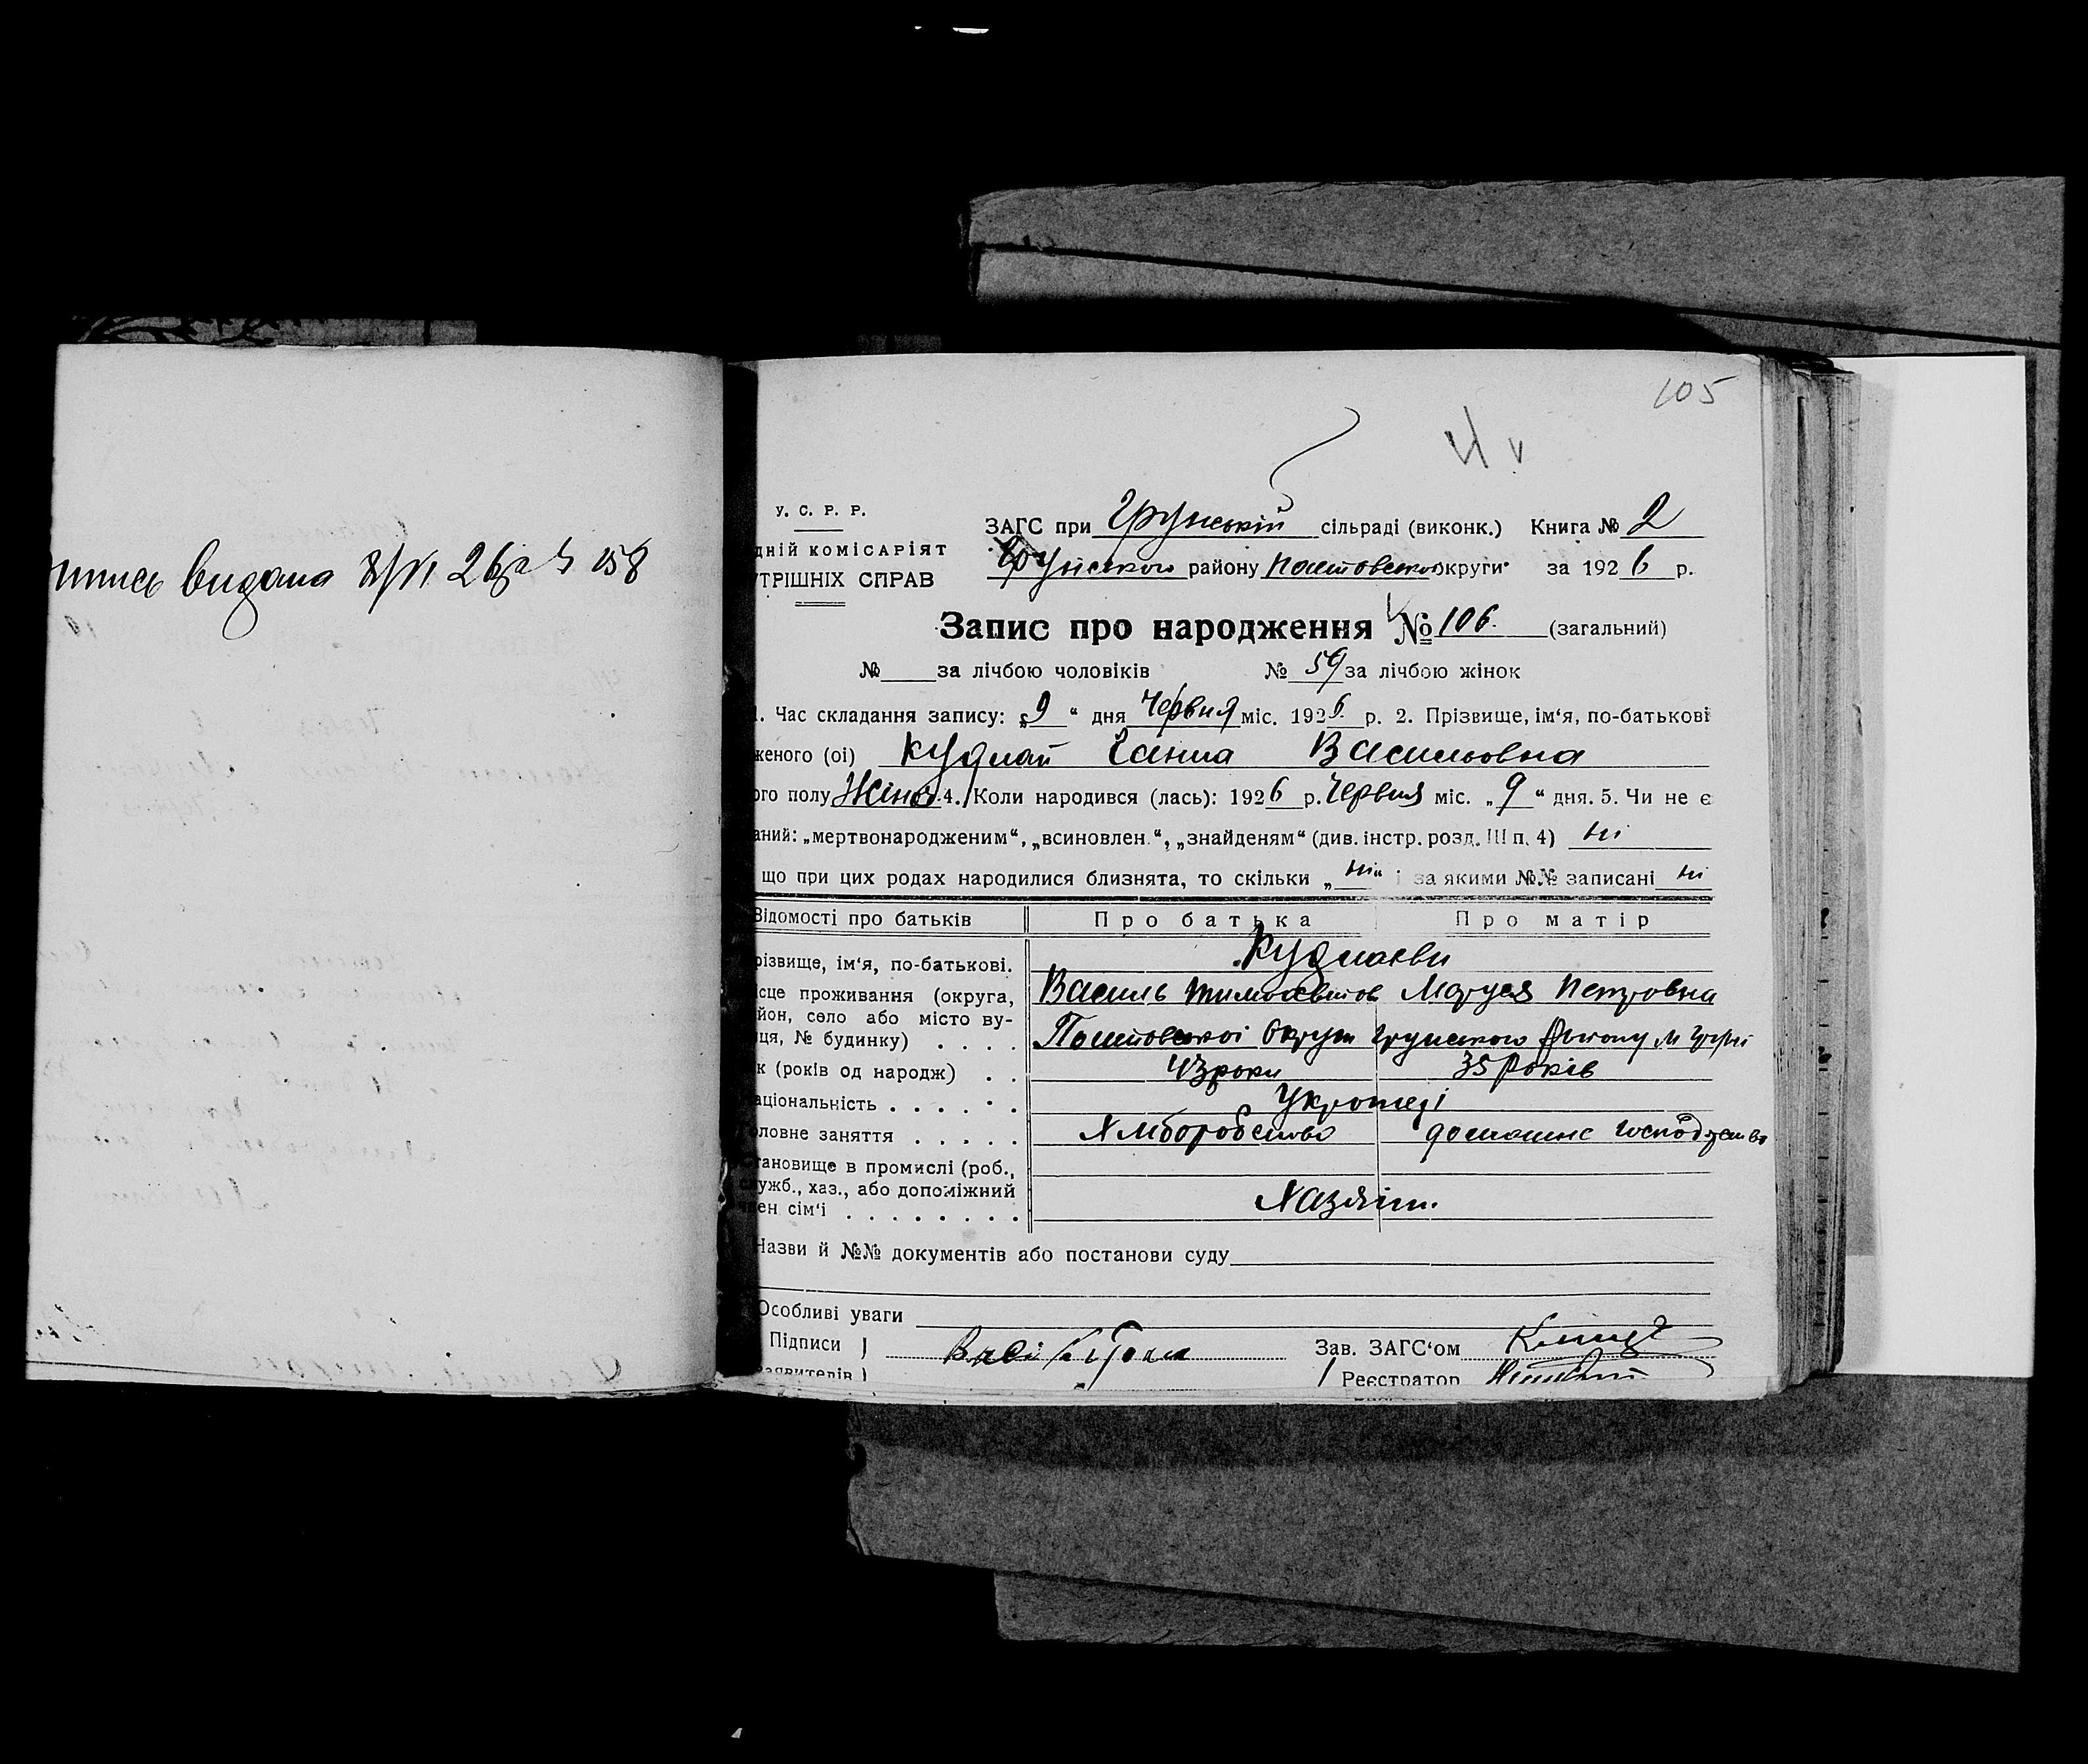 видана 8/VI 26 158
105
У. С. Р. Р.
ЗАГС при Грунській сільраді (виконк.) Книга № 2
дній комісаріят
Грунського району Полтовської округи за 1926 р.
трішніх справ
Запис про народження № 106. (загальний)
№ за лічбою чоловіків № 59 за лічбою жінок
1. Час складання запису: „9“ дня Червня міс. 1926 р. 2. Прізвище, ім‘я, по-батькові
женого (ої) Кудлай Ганна Васильовна
ого полу Жіноч. 4. Коли народився (лась): 1926 р. Червня міс. „9“ дня. 5. Чи не є
аний: „мертвонародженим“, „всиновлен.“, „знайденям“ (див. інстр. розд. III п. 4) ні
що при цих родах народилися близнята, то скільки „ні“ і за якими №№ записані ні
Відомості про батьків Про батька Про матір
різвище, ім‘я, по-батькові. Кудлаєви
Василь Маруся Петровна
ісце проживання (округа,
йон, село або місто ву-
ця, № будинку) . . . . Округи Грунського Району м
к (років од народж) . . 43 роки 35 років
аціональність . . . . . . Українці
оловне заняття . . . . . Хліборобство домашнє господарство
тановище в промислі (роб.,
ужб., хаз., або допоміжний Хазяїн.
ен сім‘ї . . . . . . . .
Назви й №№ документів або постанови суду
Особливі уваги
Підписи
Зав. ЗАГС‘ом
аявителів
Реєстратор